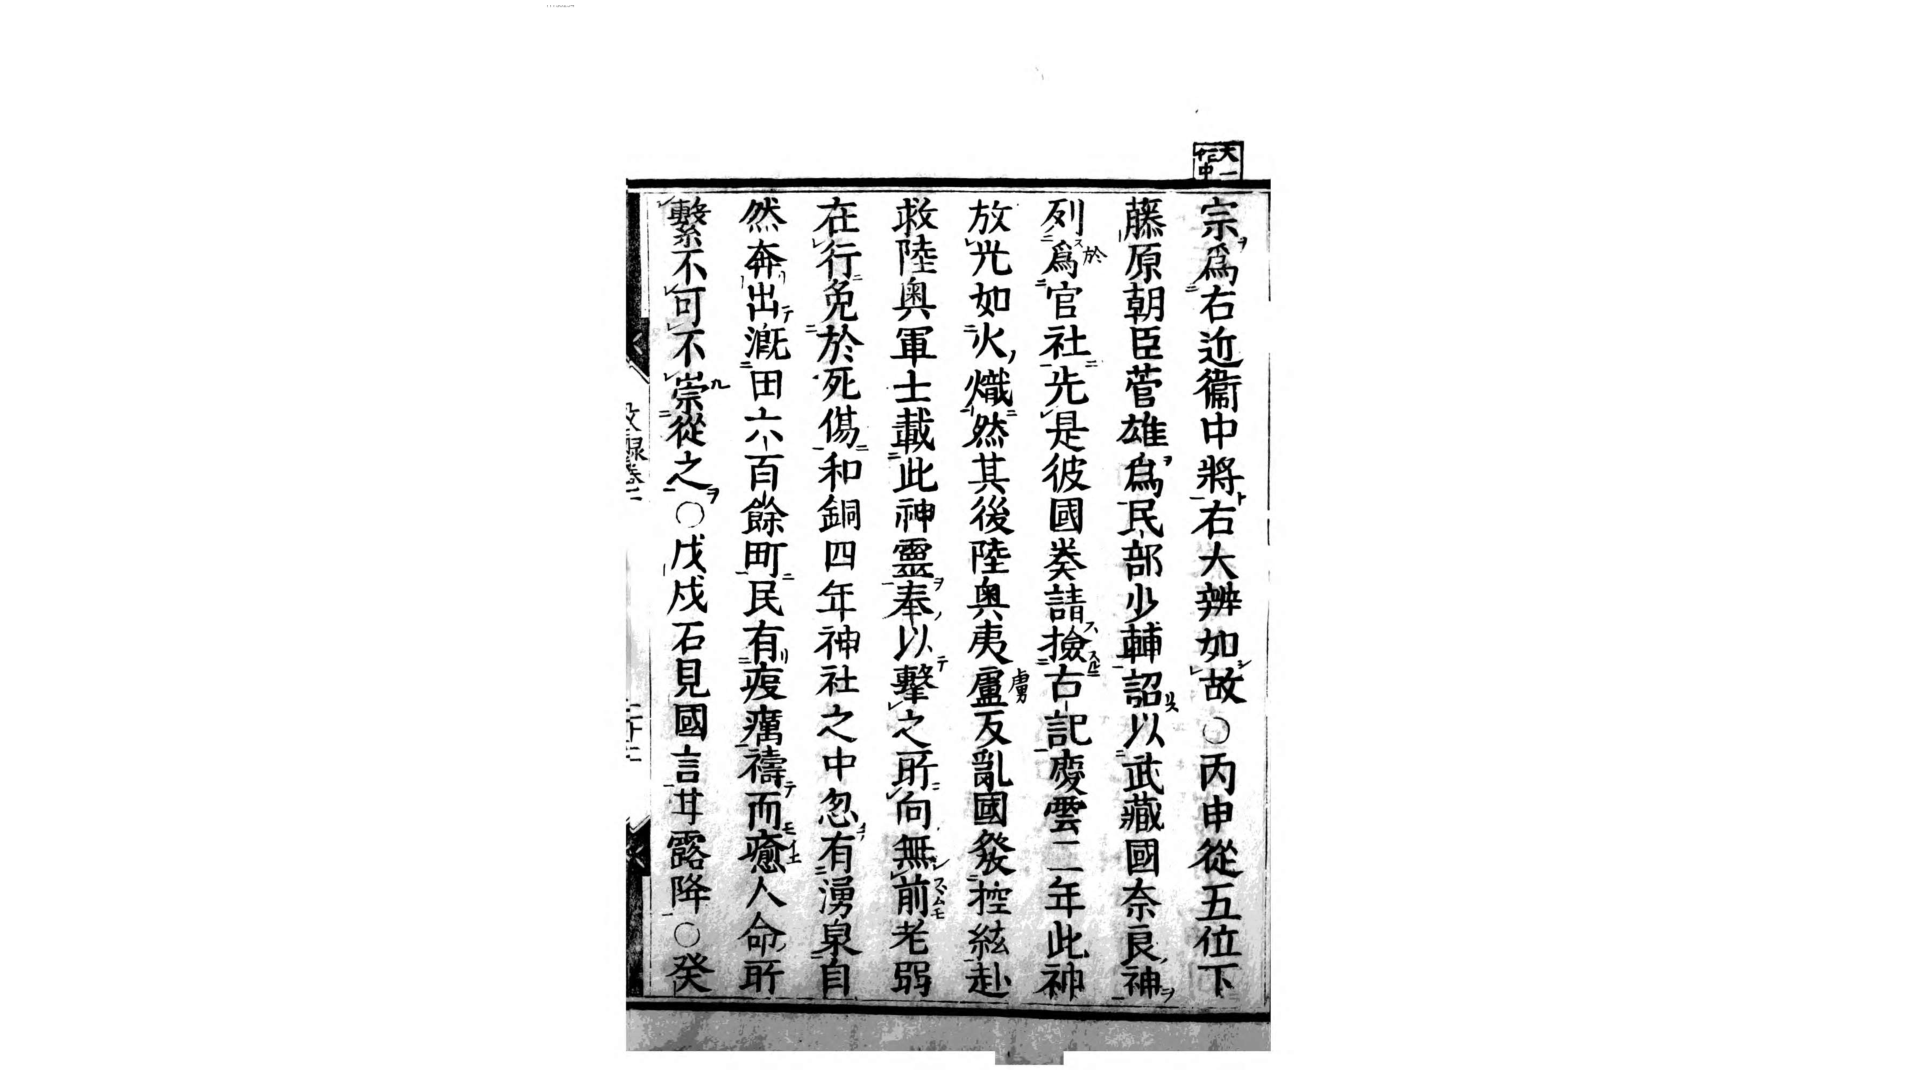 宗爲右近衞中將右大辨如故○丙申從五位下
藤原朝臣菅雄爲民部少輔詔以武藏國奈良神
列爲官社先是彼國奏請撿古記慶雲二年此神
放光如火熾然其後陸奧夷盧反亂國發控絃赴
救陸奧軍士載此神靈奉以擊之所向無前老弱
在行免於死傷和銅四年神社之中忽有湧泉自
然奔出漑田六百餘町民有疫癘禱而癒人命所
繫不可不崇從之○戊戌石見國言甘露降○癸